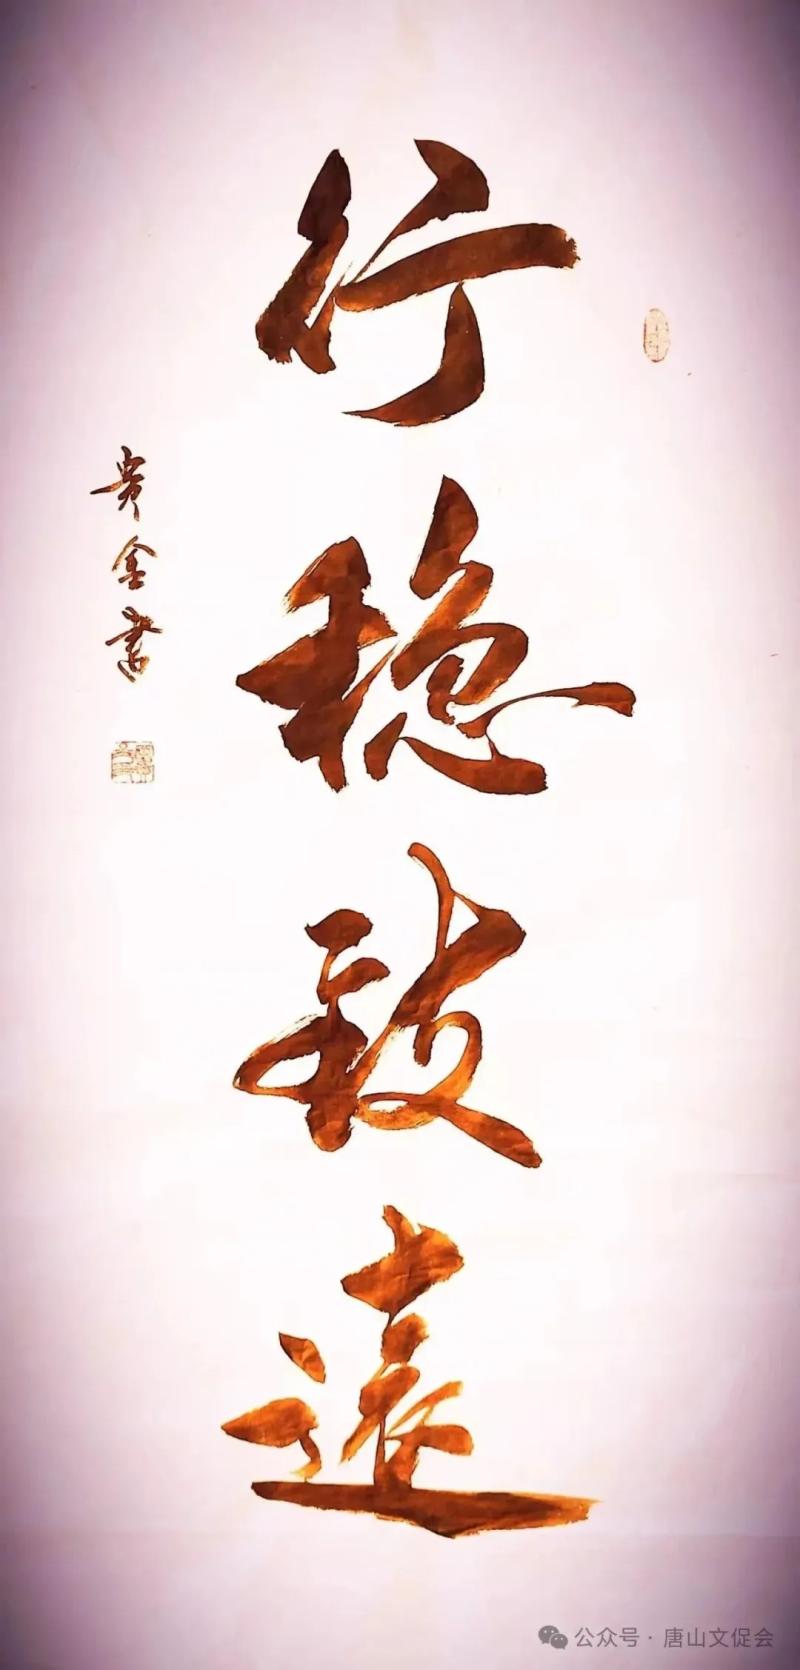 行稳致遠
贵金书
公众号·唐山文促会